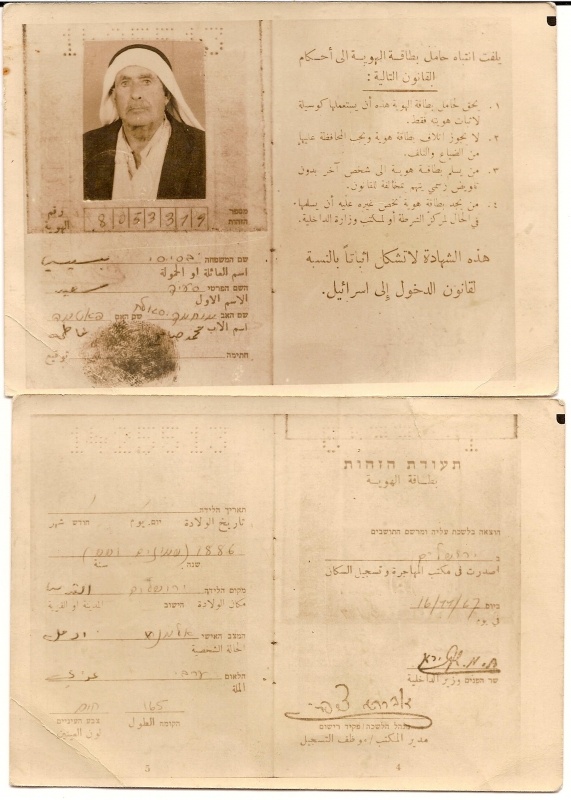 מספר
הזהות
رقم
الهوية
8 0 5 3 3 1 9
שם המשפחה
اسم العائلة او الحمولة
השם הפרטי
سعيد
الاسم الاول
שם האב
שם האם
פאטמה
اسم الاب
محمد
فاطمة
חתימה
توقيع
يلفت انتباه حامل بطاقة الهوية الى أحكام
القانون التالية :
١. يحق لحامل بطاقة الهوية هذه أن يستعملها كوسيلة
لاثبات هويته فقط.
٢. لا يجوز اتلاف بطاقة هوية ويجب المحافظة عليها
من الضياع والتلف.
٣. من يسلم بطاقة هوية الى شخص آخر بدون
تفويض رسمي يتهم بمخالفة القانون.
٤. من يجد بطاقة هوية تخص غيره عليه أن يسلمها
في الحال لمركز الشرطة أو لمكتب وزارة الداخلية.
هذه الشهادة لا تشكل اثباتاً بالنسبة
لقانون الدخول إلى اسرائيل.
תעודת הזהות
بطاقة الهوية
הוצאה בלשכת עליה ומרשם התושבים
ב ירושלים
اصدرت في مكتب المهاجرة وتسجيل السكان
ביום 16/11/67
في يوم
שר הפנים وزير الداخلية
מנהל הלשכה/פקיד רישום
مدير المكتب/موظف التسجيل
4
תאריך הלידה
تاريخ الولادة
יום, يوم
חודש شهر
1886
שנה سنة
מקום הלידה ירושלים القدس
مكان الولادة
הישוב
المدينة او القرية
המצב האישי אלמן
الحالة الشخصية
הלאום ערבי عربي
الملة
165 חום
הקומה الطول
צבע העיניים
لون العينين
5